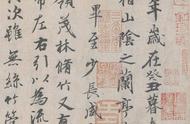 年歲在癸丑暮
稽山陰之蘭亭
畢至少長咸
領茂林脩竹又有
帶左右引以為流
次雖無絲竹管